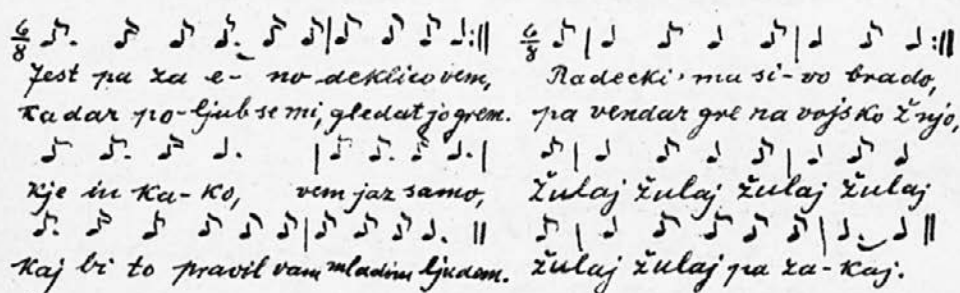 6/8
Jest pa za e- no deklico vem,
kadar po-ljub se mi, gledat jo grem.
kje in ka-ko, vem jaz samo,
kaj bi to pravil vam mladim ljudem.
6/8
Radecki ma si-vo brado,
pa vendar gre na vojsko ž njo,
žulaj žulaj žulaj žulaj
žulaj žulaj pa za-kaj.